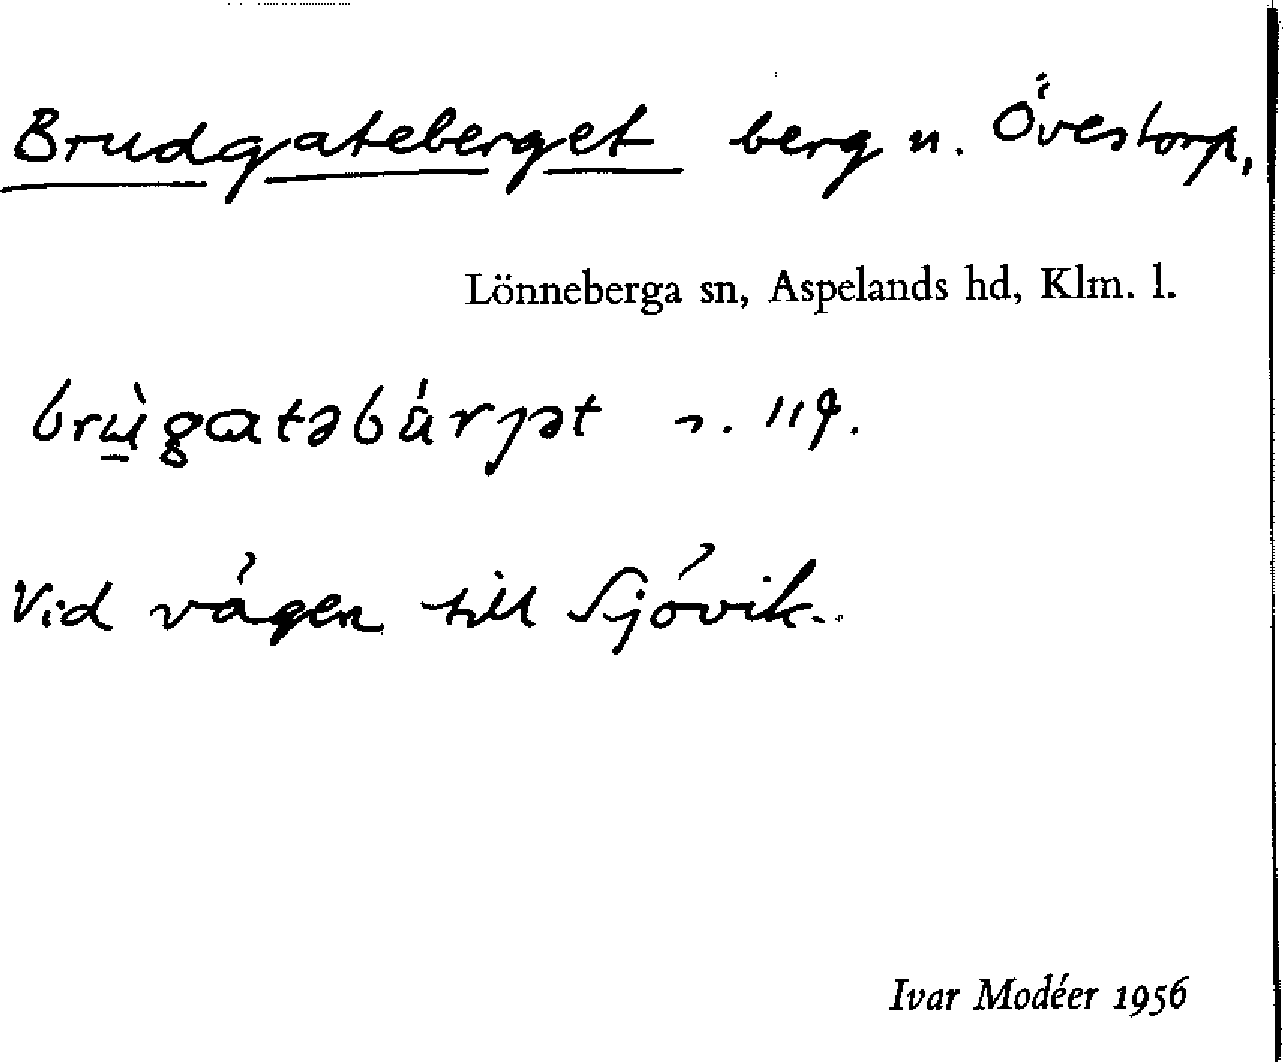 Brudgateberget berg n. Övestorp,
Lönneberga sn, Aspelands hd, Klm. l.
brὺgatəbárjət n. 119.
Vid vägen till Sjövik.
Ivar Modéer 1956